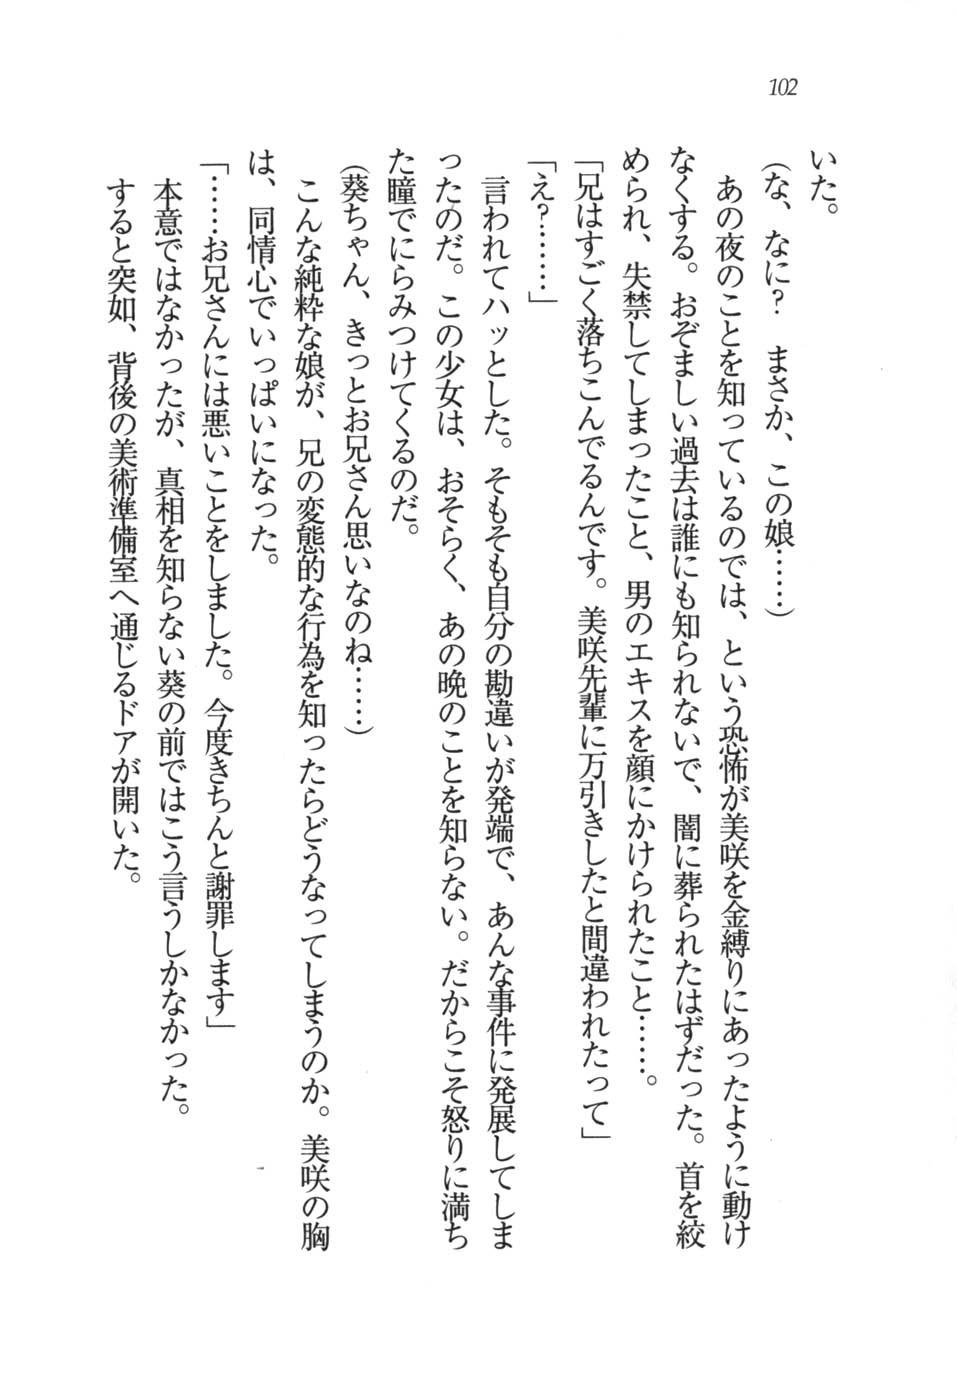 102
いた。
(な、なに? まさか、この娘……)
あの夜のことを知っているのでは、という恐怖が美咲を金縛りにあったように動け
なくする。おぞましい過去は誰にも知られないで、闇に葬られたはずだった。首を絞
められ、失禁してしまったこと、男のエキスを顔にかけられたこと……。
「兄はすごく落ちこんでるんです。美咲先輩に万引きしたと間違われたって」
「え?………」
言われてハッとした。そもそも自分の勘違いが発端で、あんな事件に発展してしま
ったのだ。この少女は、おそらく、あの晩のことを知らない。だからこそ怒りに満ち
た瞳でにらみつけてくるのだ。
(葵ちゃん、きっとお兄さん思いなのね……)
こんな純粋な娘が、兄の変態的な行為を知ったらどうなってしまうのか。美咲の胸
は、同情心でいっぱいになった。
「……お兄さんには悪いことをしました。今度きちんと謝罪します」
本意ではなかったが、真相を知らない葵の前ではこう言うしかなかった。
すると突如、背後の美術準備室へ通じるドアが開いた。